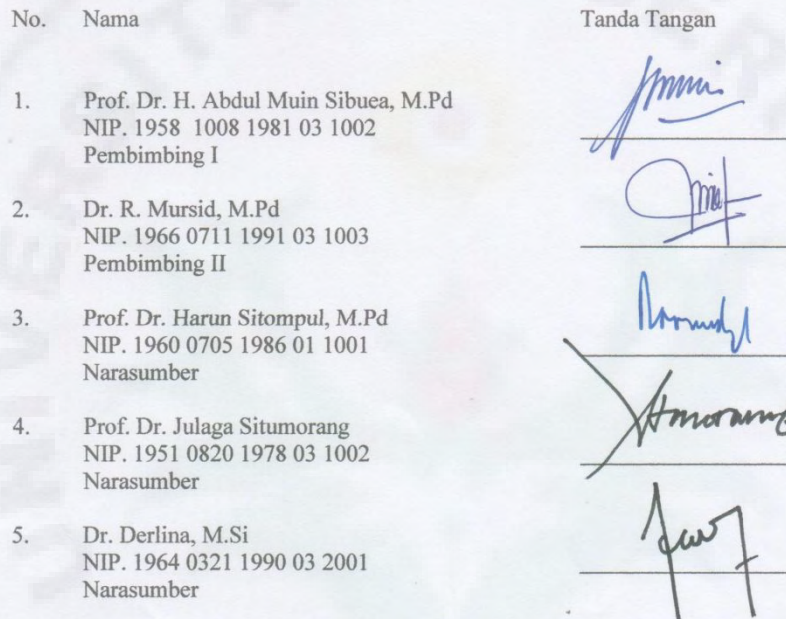 No. Nama Tanda Tangan
1. Prof. Dr. H. Abdul Muin Sibuea, M.Pd
NIP. 1958 1008 1981 03 1002
Pembimbing I
2. Dr. R. Mursid, M.Pd
NIP. 1966 0711 1991 03 1003
Pembimbing II
3. Prof. Dr. Harun Sitompul, M.Pd
NIP. 1960 0705 1986 01 1001
Narasumber
4. Prof. Dr. Julaga Situmorang
NIP. 1951 0820 1978 03 1002
Narasumber
5. Dr. Derlina, M.Si
NIP. 1964 0321 1990 03 2001
Narasumber